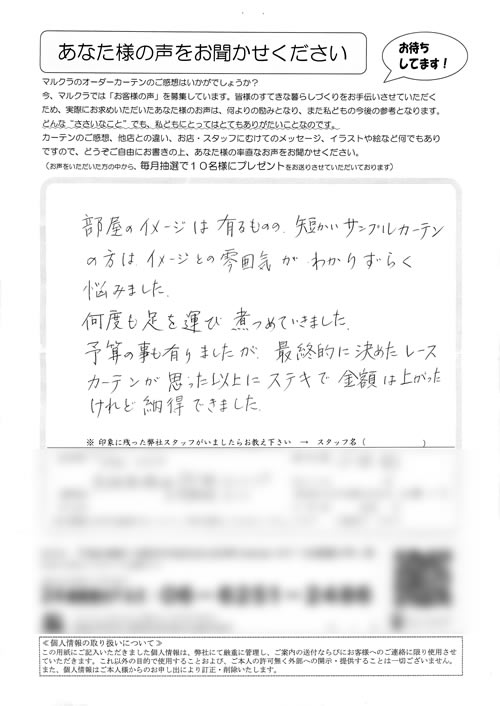 あなた様の声をお聞かせください
お待ち
してます！
マルクラのオーダーカーテンのご感想はいかがでしょうか？
今、マルクラでは「お客様の声」を募集しています。皆様のすてきな暮らしづくりをお手伝いさせていただく
ため、実際にお求めいただいたあなた様のお声は、何よりの励みとなり、また私どもの今後の参考となります。
どんな“ささいなこと”でも、私どもにとってはとてもありがたいことなのです。
カーテンのご感想、他店との違い、お店・スタッフにむけてのメッセージ、イラストや絵など何でもあり
ですので、どうぞご自由にお書きの上、あなた様の率直なお声をお聞かせください。
（お声をいただいた方の中から、毎月抽選で１０名様にプレゼントをお送りさせていただいております）
部屋のイメージは有るものの、短かいサンプルカーテン
の方は、イメージとの雰囲気が わかりずらく
悩みました。
何度も足を運び 煮つめていきました。
予算の事も有りましたが、最終的に決めたレース
カーテンが思った以上にステキで 金額は上がった
けれど 納得できました。
※ 印象に残った弊社スタッフがいましたらお教え下さい → スタッフ名（ ）
06-6251-2486
≪個人情報の取り扱いについて≫
この用紙にご記入いただきました個人情報は、弊社にて厳重に管理し、ご案内の送付ならびにお客様へのご連絡に限り使用させ
ていただきます。これ以外の目的で使用することおよび、ご本人の許可無く外部への開示・提供することは一切ございません。
また、個人情報はご本人様からのお申し出により訂正・削除いたします。